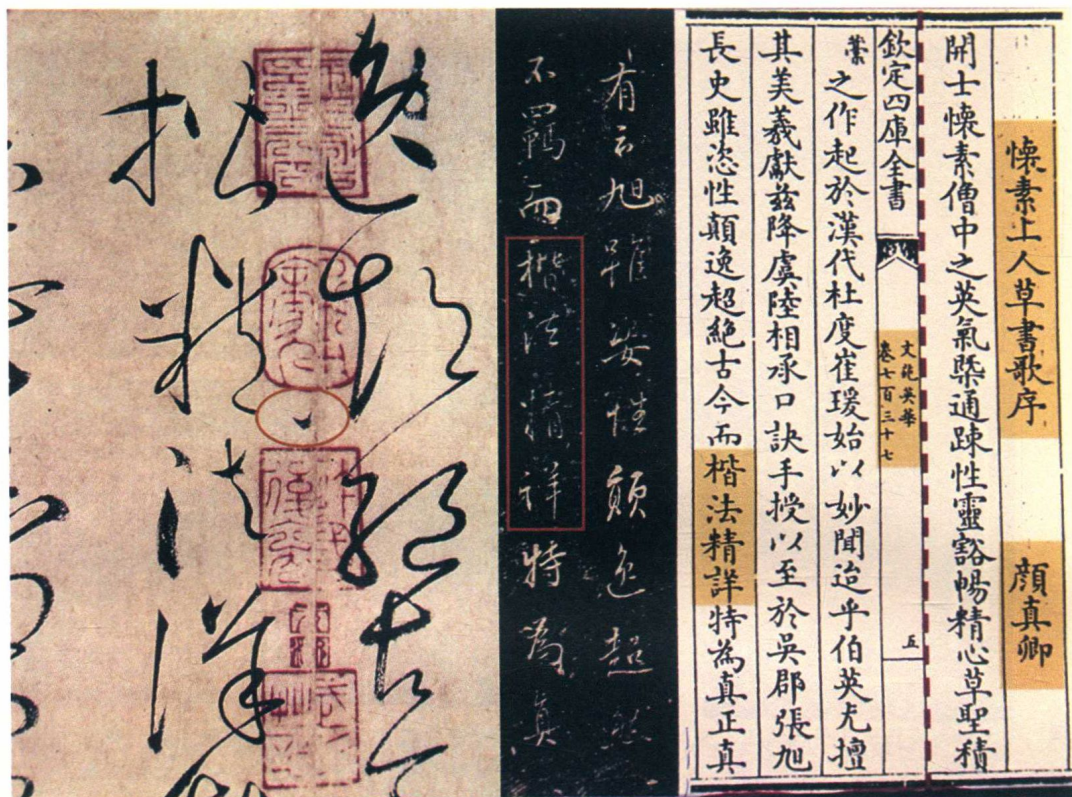 懷素上人草書歌序 顔真卿
開士懷素僧中之英氣槩通踈性靈豁暢精心草聖積
欽定四庫全書
文苑英華
卷七百三十七
五
藁之作起於漢代杜度崔瑗始以妙聞迨乎伯英尤擅
其美羲獻兹降虞陸相承口訣手授以至於吳郡張旭
長史雖恣性顛逸超絶古今而楷法精詳特為真正真
有云旭雖姿性顛逸超然
不羈而楷法精詳特為真
逸超絶古今
模精法詳